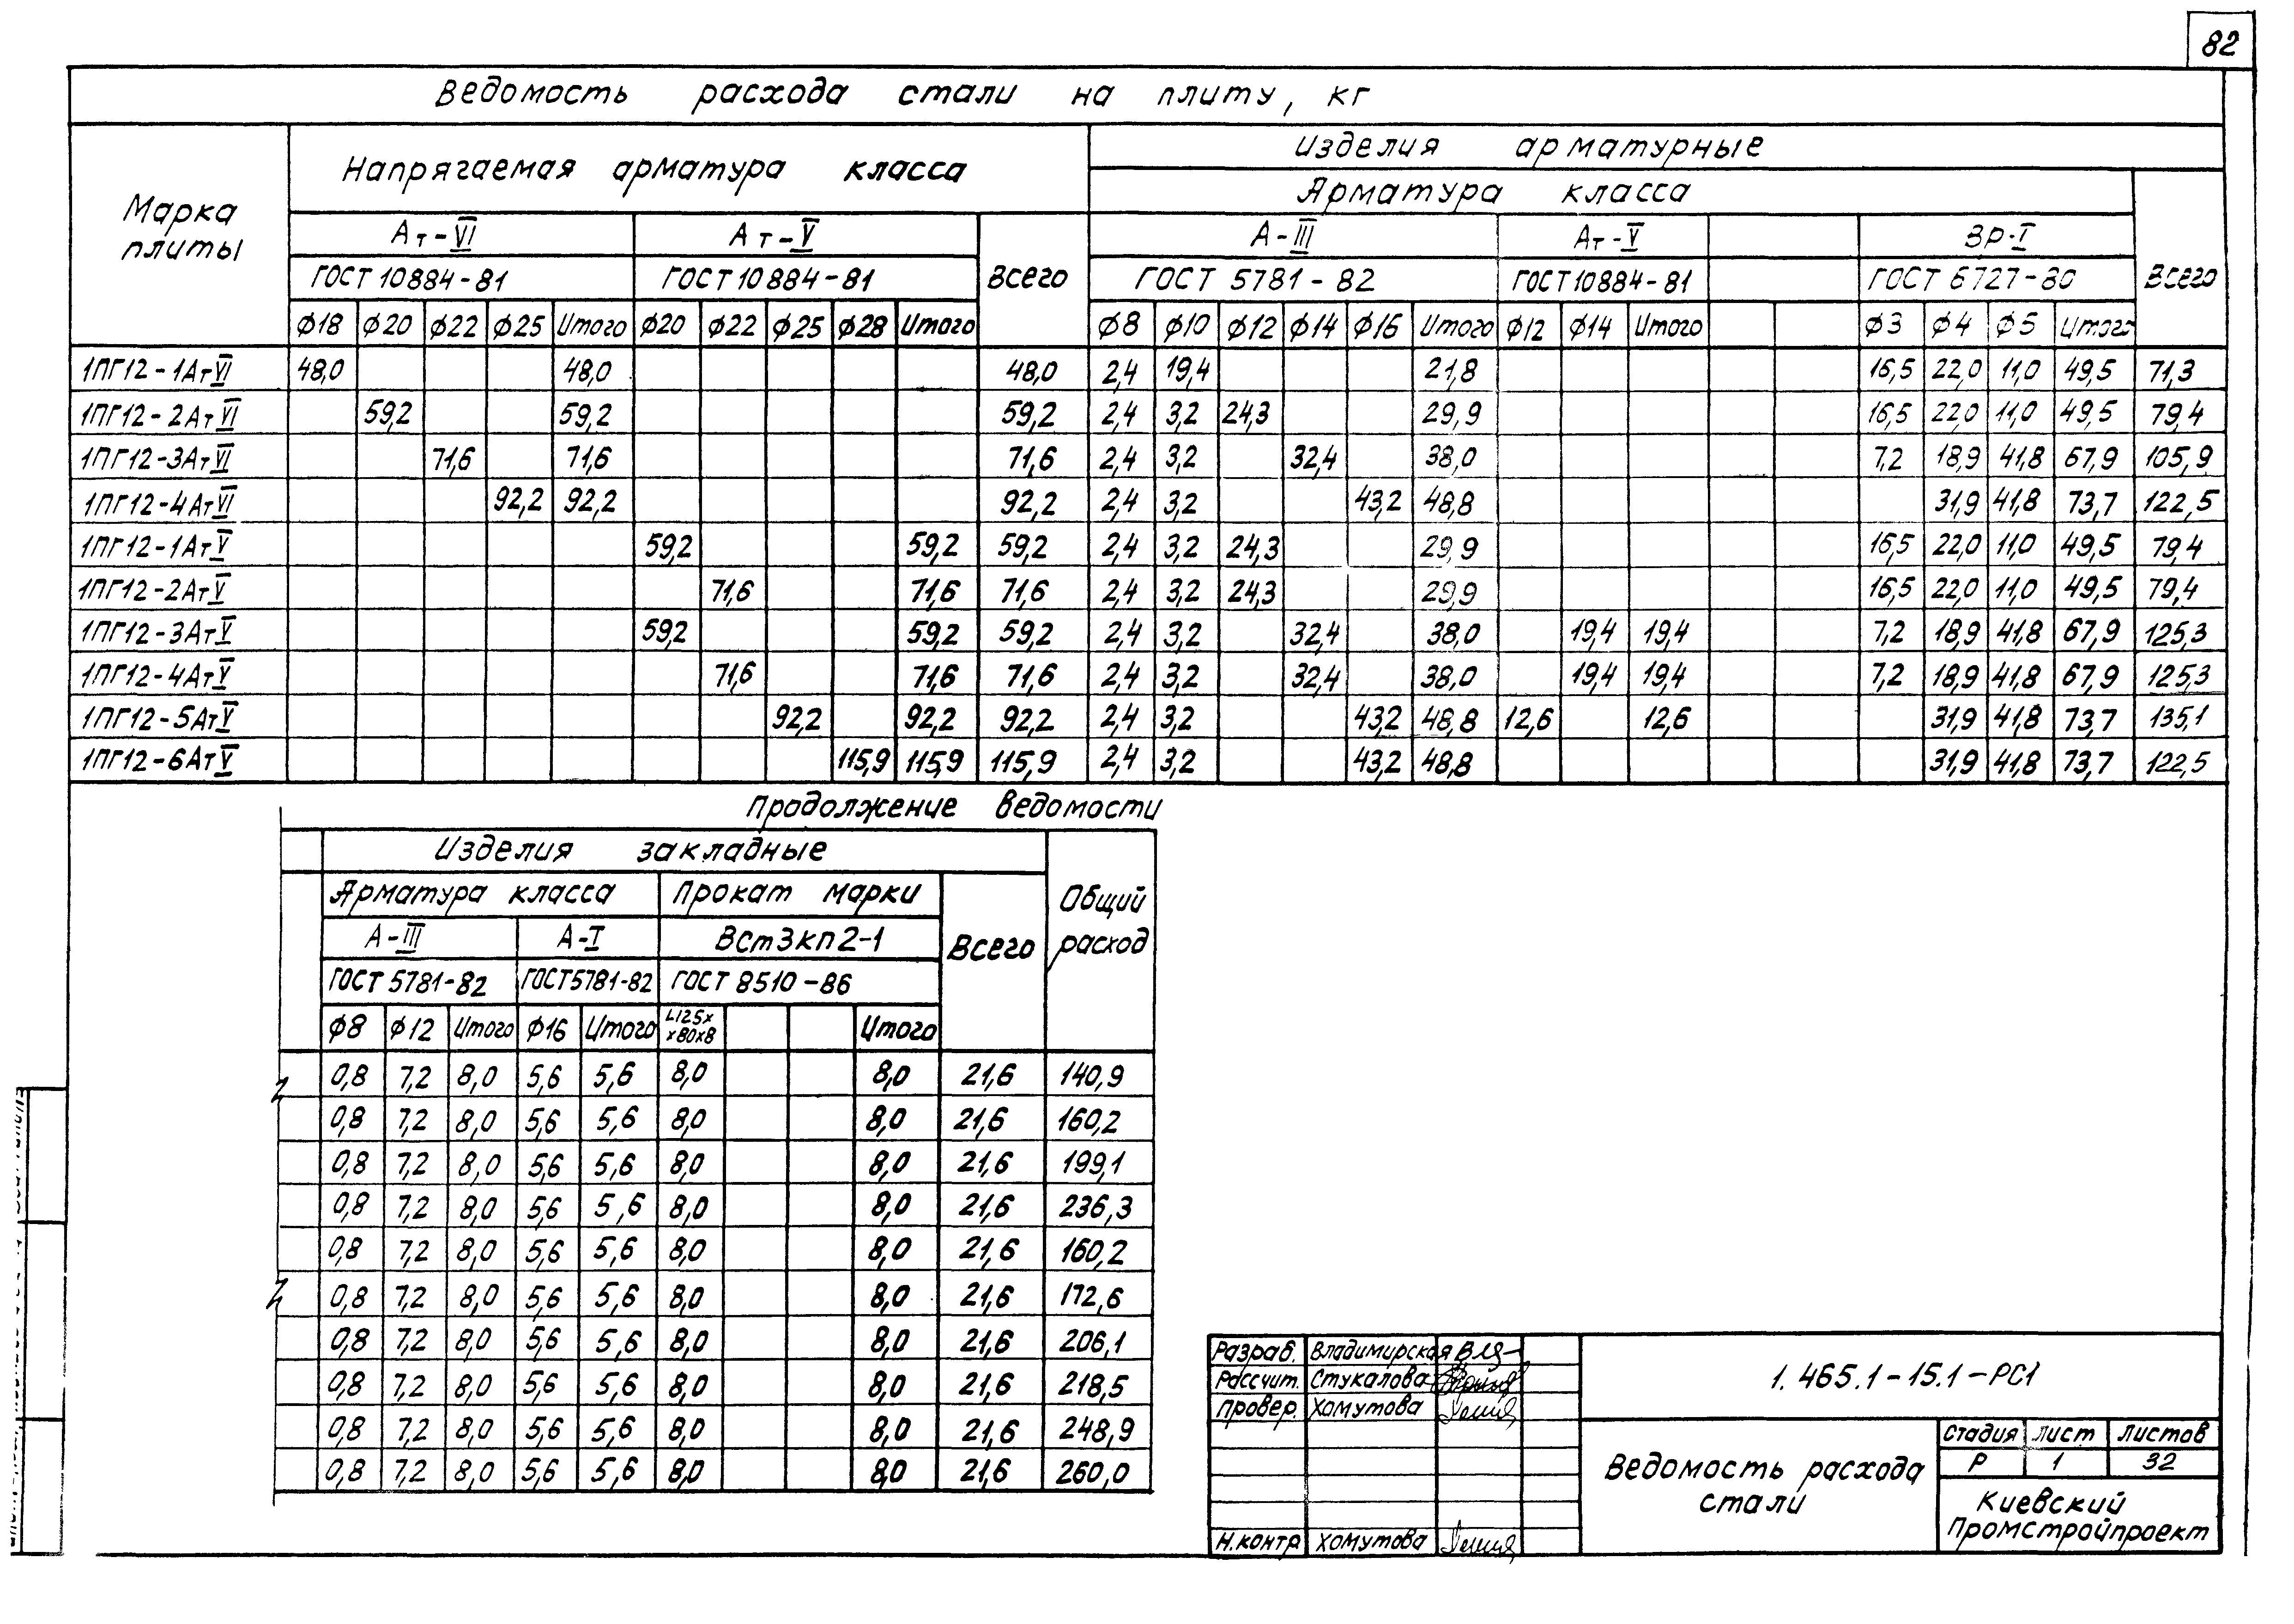 82
Ведомость расхода стали на плиту, кг
Марка плиты
Напрягаемая арматура класса
Изделия арматурные
Арматура класса
Ат-VI Ат-V Всего А-III Ат-V Вр-I Всего
ГОСТ 10884-81 ГОСТ 10884-81 ГОСТ 5781-82 ГОСТ 10884-81 ГОСТ 6727-80
φ18 φ20 φ22 φ25 Итого φ20 φ22 φ25 φ28 Итого φ8 φ10 φ12 φ14 φ16 Итого φ12 φ14 Итого φ3 φ4 φ5 Итого
1ПГ12-1АтVI 48,0 48,0 48,0 2,4 19,4 21,8 16,5 22,0 11,0 49,5 71,3
1ПГ12-2АтVI 59,2 59,2 59,2 2,4 3,2 24,3 29,9 16,5 22,0 11,0 49,5 79,4
1ПГ12-3АтVI 71,6 71,6 71,6 2,4 3,2 32,4 38,0 7,2 18,9 41,8 67,9 105,9
1ПГ12-4АтVI 92,2 92,2 92,2 2,4 3,2 43,2 48,8 31,9 41,8 73,7 122,5
1ПГ12-1АтV 59,2 59,2 59,2 2,4 3,2 24,3 29,9 16,5 22,0 11,0 49,5 79,4
1ПГ12-2АтV 71,6 71,6 71,6 2,4 3,2 24,3 29,9 16,5 22,0 11,0 49,5 79,4
1ПГ12-3АтV 59,2 59,2 59,2 2,4 3,2 32,4 38,0 19,4 19,4 7,2 18,9 41,8 67,9 125,3
1ПГ12-4АтV 71,6 71,6 71,6 2,4 3,2 32,4 38,0 19,4 19,4 7,2 18,9 41,8 67,9 125,3
1ПГ12-5АтV 92,2 92,2 92,2 2,4 3,2 43,2 48,8 12,6 12,6 31,9 41,8 73,7 135,1
1ПГ12-6АтV 115,9 115,9 115,9 2,4 3,2 43,2 48,8 31,9 41,8 73,7 122,5
Продолжение ведомости
Изделия закладные
Арматура класса Прокат марки Всего Общий расход
А-III А-I ВСт3кп2-1
ГОСТ 5781-82 ГОСТ 5781-82 ГОСТ 8510-86
φ8 φ12 Итого φ16 Итого L125х х80х8 Итого
0,8 7,2 8,0 5,6 5,6 8,0 8,0 21,6 140,9
0,8 7,2 8,0 5,6 5,6 8,0 8,0 21,6 160,2
0,8 7,2 8,0 5,6 5,6 8,0 8,0 21,6 199,1
0,8 7,2 8,0 5,6 5,6 8,0 8,0 21,6 236,3
0,8 7,2 8,0 5,6 5,6 8,0 8,0 21,6 160,2
0,8 7,2 8,0 5,6 5,6 8,0 8,0 21,6 172,6
0,8 7,2 8,0 5,6 5,6 8,0 8,0 21,6 206,1
0,8 7,2 8,0 5,6 5,6 8,0 8,0 21,6 218,5
0,8 7,2 8,0 5,6 5,6 8,0 8,0 21,6 248,9
0,8 7,2 8,0 5,6 5,6 8,0 8,0 21,6 260,0
Разраб. Владимирская
Рассчит. Стукалова
Провер. Хомутова
Н.контр Хомутова
1.465.1-15.1-РС1
Ведомость расхода
стали
Стадия Лист Листов
Р 1 32
Киевский
Промстройпроект